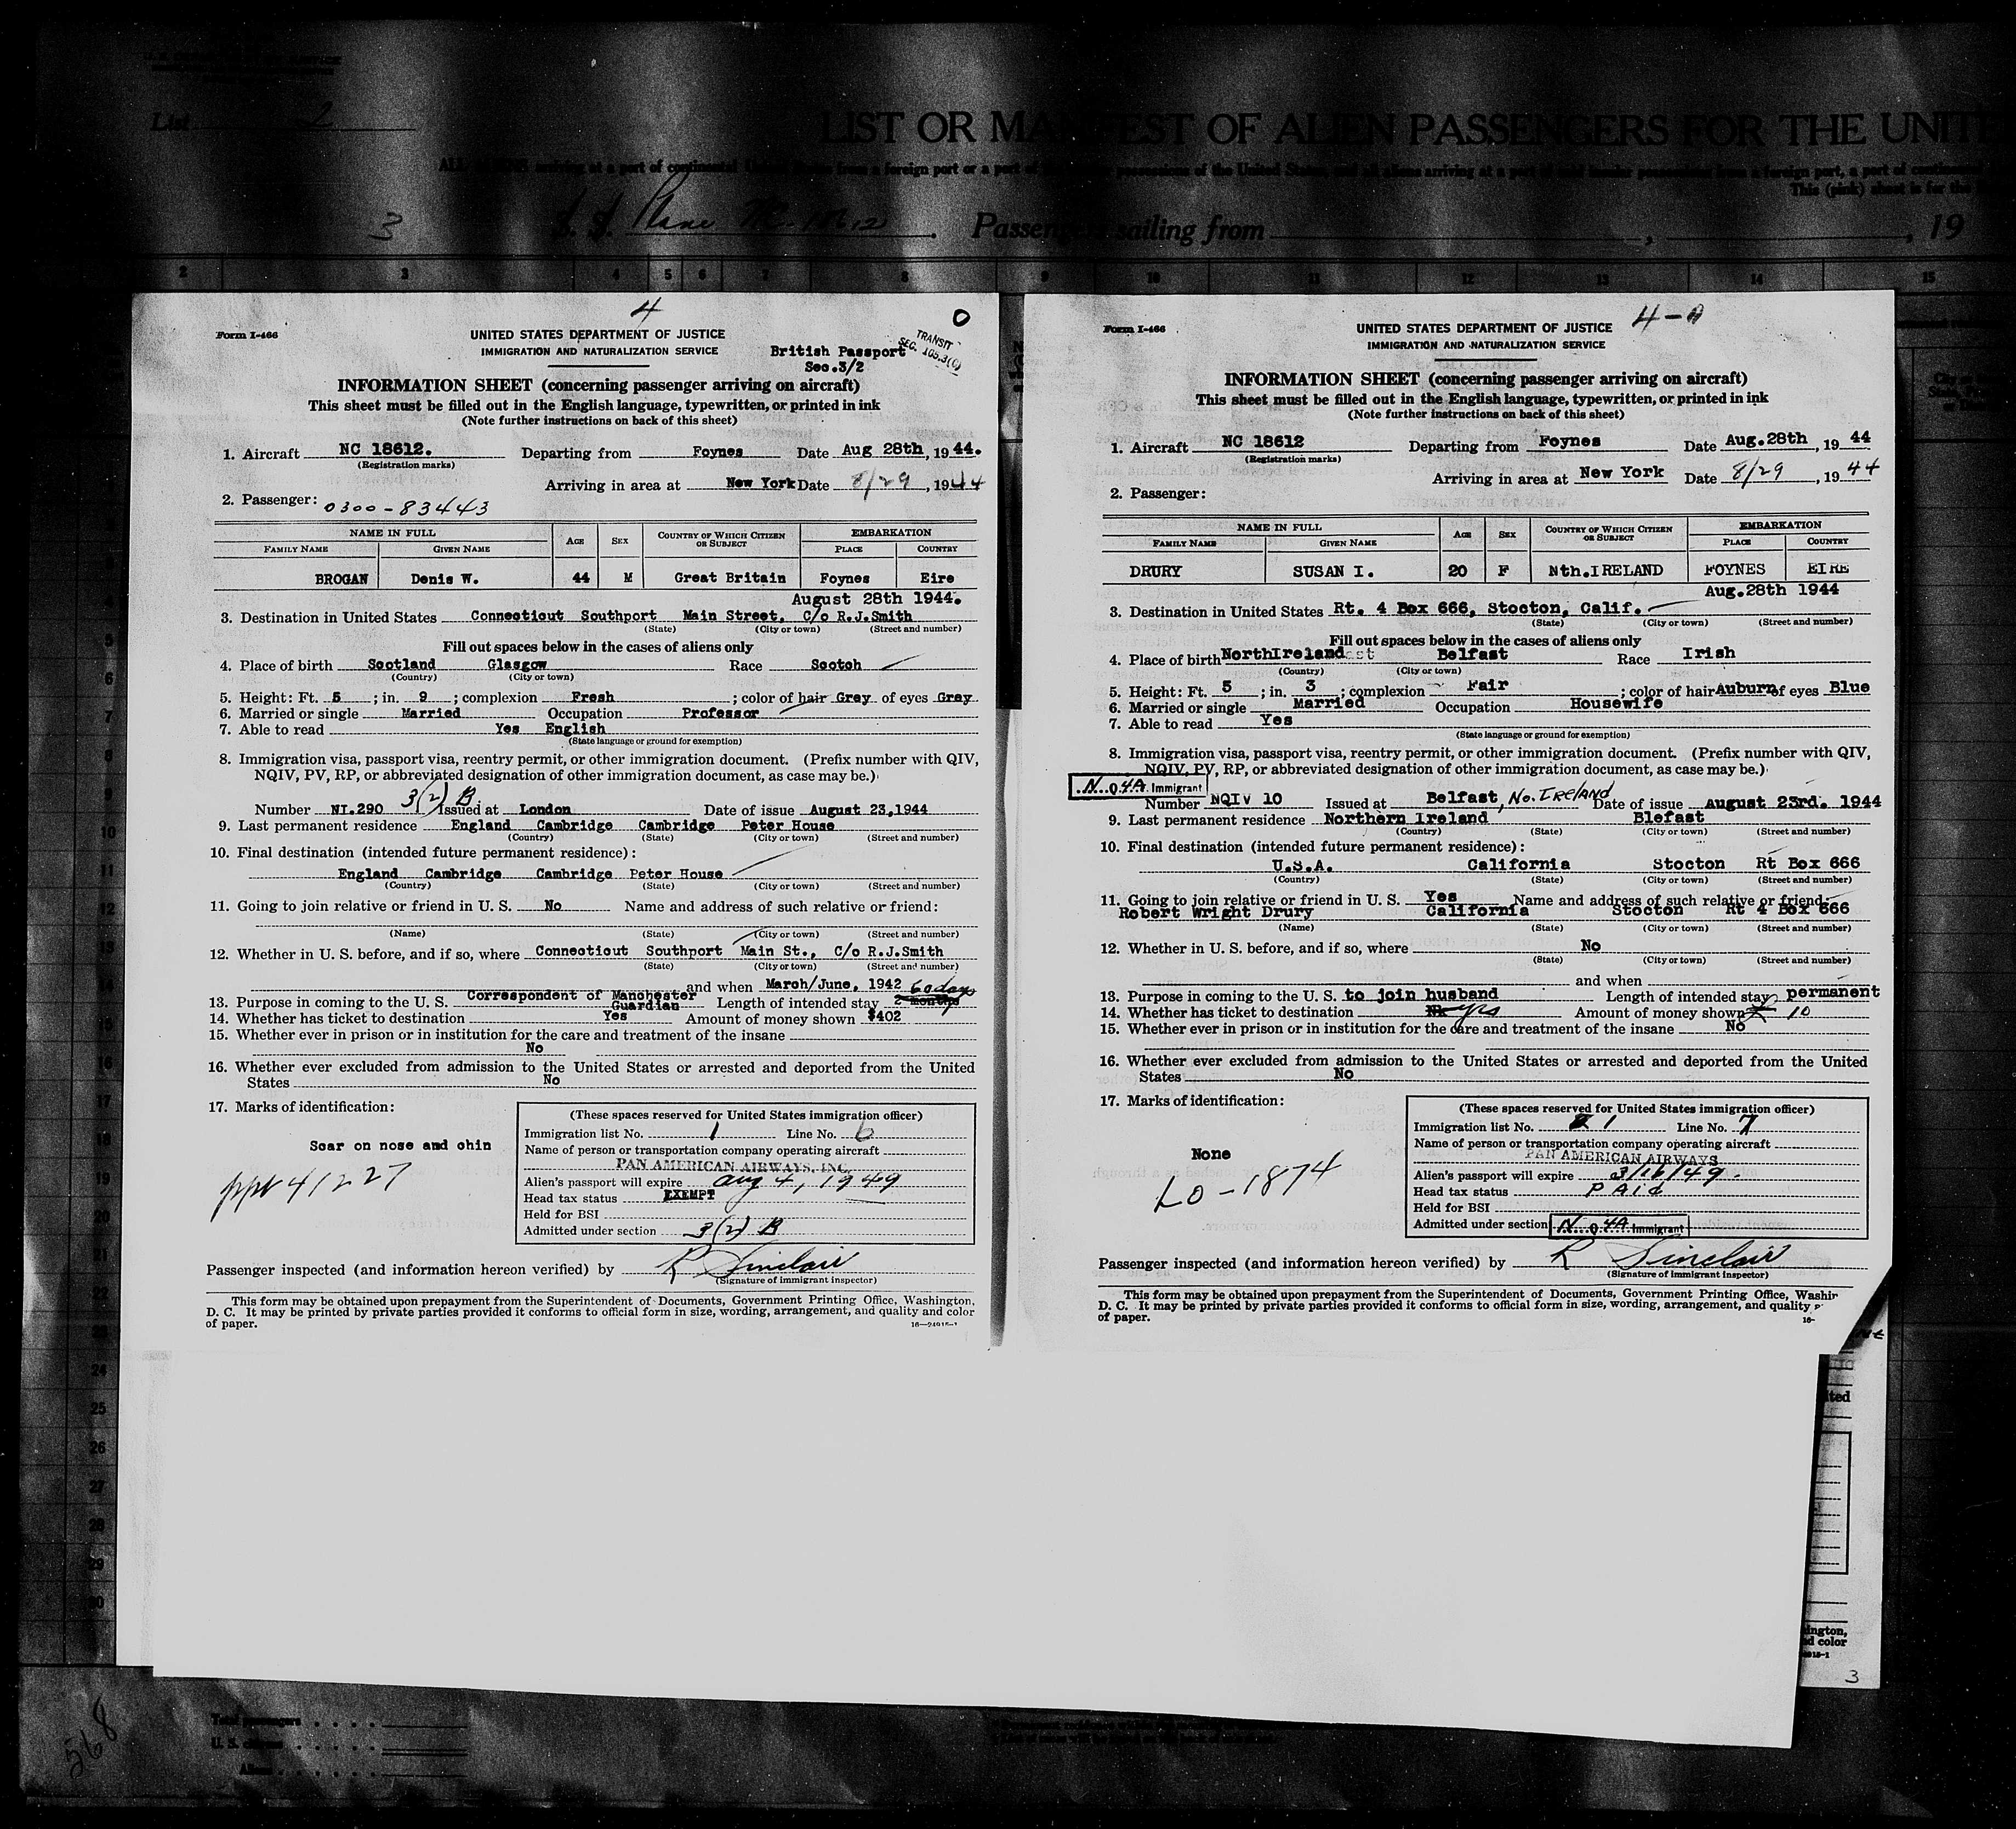 List 2
LIST OR MANIFEST OF ALIEN PASSENGERS FOR THE UNIT
3 S. S. Passengers sailing from , , 19
2 3 4 5 6 7 8 9 10 11 12 13 14 15
4 0
Form I-466 UNITED STATES DEPARTMENT OF JUSTICE
IMMIGRATION AND NATURALIZATION SERVICE
British Passport
Sec.3/2
TRANSIT
SEC. 105.3(c)
INFORMATION SHEET (concerning passenger arriving on aircraft)
This sheet must be filled out in the English language, typewritten, or printed in ink
(Note further instructions on back of this sheet)
1. Aircraft NC 18612. Departing from Foynes Date Aug 28th, 19 44.
(Registration marks)
Arriving in area at New York Date 8/29, 1944
2. Passenger: 0300-83443
NAME IN FULL AGE SEX COUNTRY OF WHICH CITIZEN OR SUBJECT EMBARKATION
FAMILY NAME GIVEN NAME PLACE COUNTRY
BROGAN Denis W. 44 M Great Britain Foynes Eire
August 28th 1944.
3. Destination in United States Connecticut Southport Main Street, C/o R.J.Smith
(State) (City or town) (Street and number)
Fill out spaces below in the cases of aliens only
4. Place of birth Scotland Glasgow Race Scotch
(Country) (City or town)
5. Height: Ft. 5 ; in. 9 ; complexion Fresh ; color of hair Grey of eyes Grey
6. Married or single Married Occupation Professor
7. Able to read Yes English
(State language or ground for exemption)
8. Immigration visa, passport visa, reentry permit, or other immigration document. (Prefix number with QIV,
NQIV, PV, RP, or abbreviated designation of other immigration document, as case may be.)
3(2) B.
Number NI.290 Issued at London Date of issue August 23,1944
9. Last permanent residence England Cambridge Cambridge Peter House
(Country) (State) (City or town) (Street and number)
10. Final destination (intended future permanent residence):
England Cambridge Cambridge Peter House
(Country) (State) (City or town) (Street and number)
11. Going to join relative or friend in U. S. No Name and address of such relative or friend:
(Name) (State) (City or town) (Street and number)
12. Whether in U. S. before, and if so, where Connecticut Southport Main St., C/o R.J.Smith
(State) (City or town) (Street and number)
and when March/June, 1942 60 days
13. Purpose in coming to the U. S. Correspondent of Manchester Guardian Length of intended stay 2 months
14. Whether has ticket to destination Yes Amount of money shown $402
15. Whether ever in prison or in institution for the care and treatment of the insane
No
16. Whether ever excluded from admission to the United States or arrested and deported from the United
States No
17. Marks of identification:
Scar on nose and chin
ppt 41227
(These spaces reserved for United States immigration officer)
Immigration list No. 1 Line No. 6
Name of person or transportation company operating aircraft
PAN AMERICAN AIRWAYS, INC.
Alien's passport will expire Aug 4, 1949
Head tax status EXEMPT
Held for BSI
Admitted under section 3(2) B
Passenger inspected (and information hereon verified) by R Sinclair
(Signature of immigrant inspector)
This form may be obtained upon prepayment from the Superintendent of Documents, Government Printing Office, Washington,
D. C. It may be printed by private parties provided it conforms to official form in size, wording, arrangement, and quality and color
of paper. 16—24915-1
4-A
Form I-466 UNITED STATES DEPARTMENT OF JUSTICE
IMMIGRATION AND NATURALIZATION SERVICE
INFORMATION SHEET (concerning passenger arriving on aircraft)
This sheet must be filled out in the English language, typewritten, or printed in ink
(Note further instructions on back of this sheet)
1. Aircraft NC 18612 Departing from Foynes Date Aug.28th, 19 44
(Registration marks)
Arriving in area at New York Date 8/29, 1944
2. Passenger:
NAME IN FULL AGE SEX COUNTRY OF WHICH CITIZEN OR SUBJECT EMBARKATION
FAMILY NAME GIVEN NAME PLACE COUNTRY
DRURY SUSAN I. 20 F Nth.IRELAND FOYNES EIRE
Aug.28th 1944
3. Destination in United States Rt. 4 Box 666, Stocton, Calif.
(State) (City or town) (Street and number)
Fill out spaces below in the cases of aliens only
4. Place of birth NorthIreland Belfast Race Irish
(Country) (City or town)
5. Height: Ft. 5 ; in. 3 ; complexion Fair ; color of hair Auburn of eyes Blue
6. Married or single Married Occupation Housewife
7. Able to read Yes
(State language or ground for exemption)
8. Immigration visa, passport visa, reentry permit, or other immigration document. (Prefix number with QIV,
NQIV, PV, RP, or abbreviated designation of other immigration document, as case may be.)
N. Q. 4A Immigrant
Number NQIV 10 Issued at Belfast, No. IRELAND Date of issue August 23rd. 1944
9. Last permanent residence Northern Ireland Blefast
(Country) (State) (City or town) (Street and number)
10. Final destination (intended future permanent residence):
U.S.A. California Stocton Rt Box 666
(Country) (State) (City or town) (Street and number)
11. Going to join relative or friend in U. S. Yes Name and address of such relative or friend:
Robert Wright Drury California Stocton Rt 4 Box 666
(Name) (State) (City or town) (Street and number)
12. Whether in U. S. before, and if so, where No
(State) (City or town) (Street and number)
and when
13. Purpose in coming to the U. S. to join husband Length of intended stay permanent
14. Whether has ticket to destination yes Amount of money shown 10
15. Whether ever in prison or in institution for the care and treatment of the insane No
16. Whether ever excluded from admission to the United States or arrested and deported from the United
States No
17. Marks of identification:
None
LO-1874
(These spaces reserved for United States immigration officer)
Immigration list No. 1 Line No. 7
Name of person or transportation company operating aircraft
PAN AMERICAN AIRWAYS
Alien's passport will expire 3/16/49.
Head tax status PAid
Held for BSI
Admitted under section N. Q. 4A Immigrant
Passenger inspected (and information hereon verified) by R Sinclair
(Signature of immigrant inspector)
This form may be obtained upon prepayment from the Superintendent of Documents, Government Printing Office, Washin
D. C. It may be printed by private parties provided it conforms to official form in size, wording, arrangement, and quality
of paper. 16-
ited
ington,
d color
3
568
Total passengers
U. S. citizens
Aliens